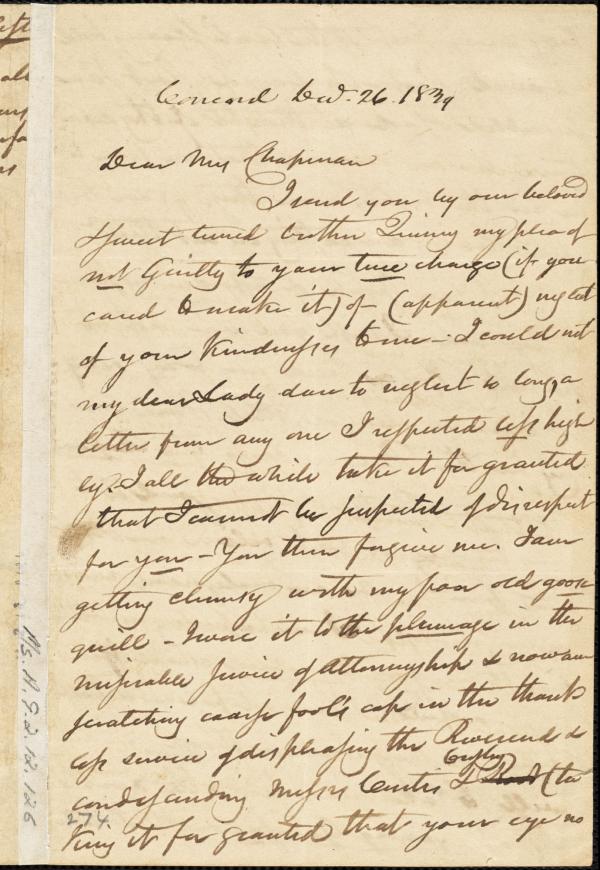 Concord Dec. 26. 1839
Dear Mrs Chapman
I send you by our beloved
& sweet tuned brother my plea of
not Guilty to your true charge (if you
cared to make it) of (apparent) neglect
of your Kindnesses to me - I could not
my dear Lady dare to neglect so long, a
letter from any one I respected less high
ly. I all the while take it for granted
that I cannot be suspected of disrespect
for you - You then forgive me. I am
getting clumsy with my poor old goose
quill - I wore it to the plumage in the
miserable service of attorneyship & now am
scratching coarse fool's cap in the thank
less service of displeasing the Reverend &
condescending Messrs Curtis &
(ta
king it for granted that your eye no
274.
Ms. A. 9.2.12.126